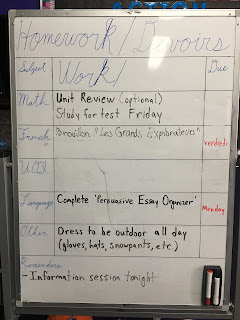 ACTION
Homework / Devoirs
Subject Work / Due
Math Unit Review (optional)
Study for test Friday
French Brouillon "Les Grands Explorateurs" vendredi
UOI
Language Complete "Persuasive Essay Organizer" Monday
Other Dress to be outdoor all day
(gloves, hats, snowpants, etc.)
Reminders
- Information session tonight